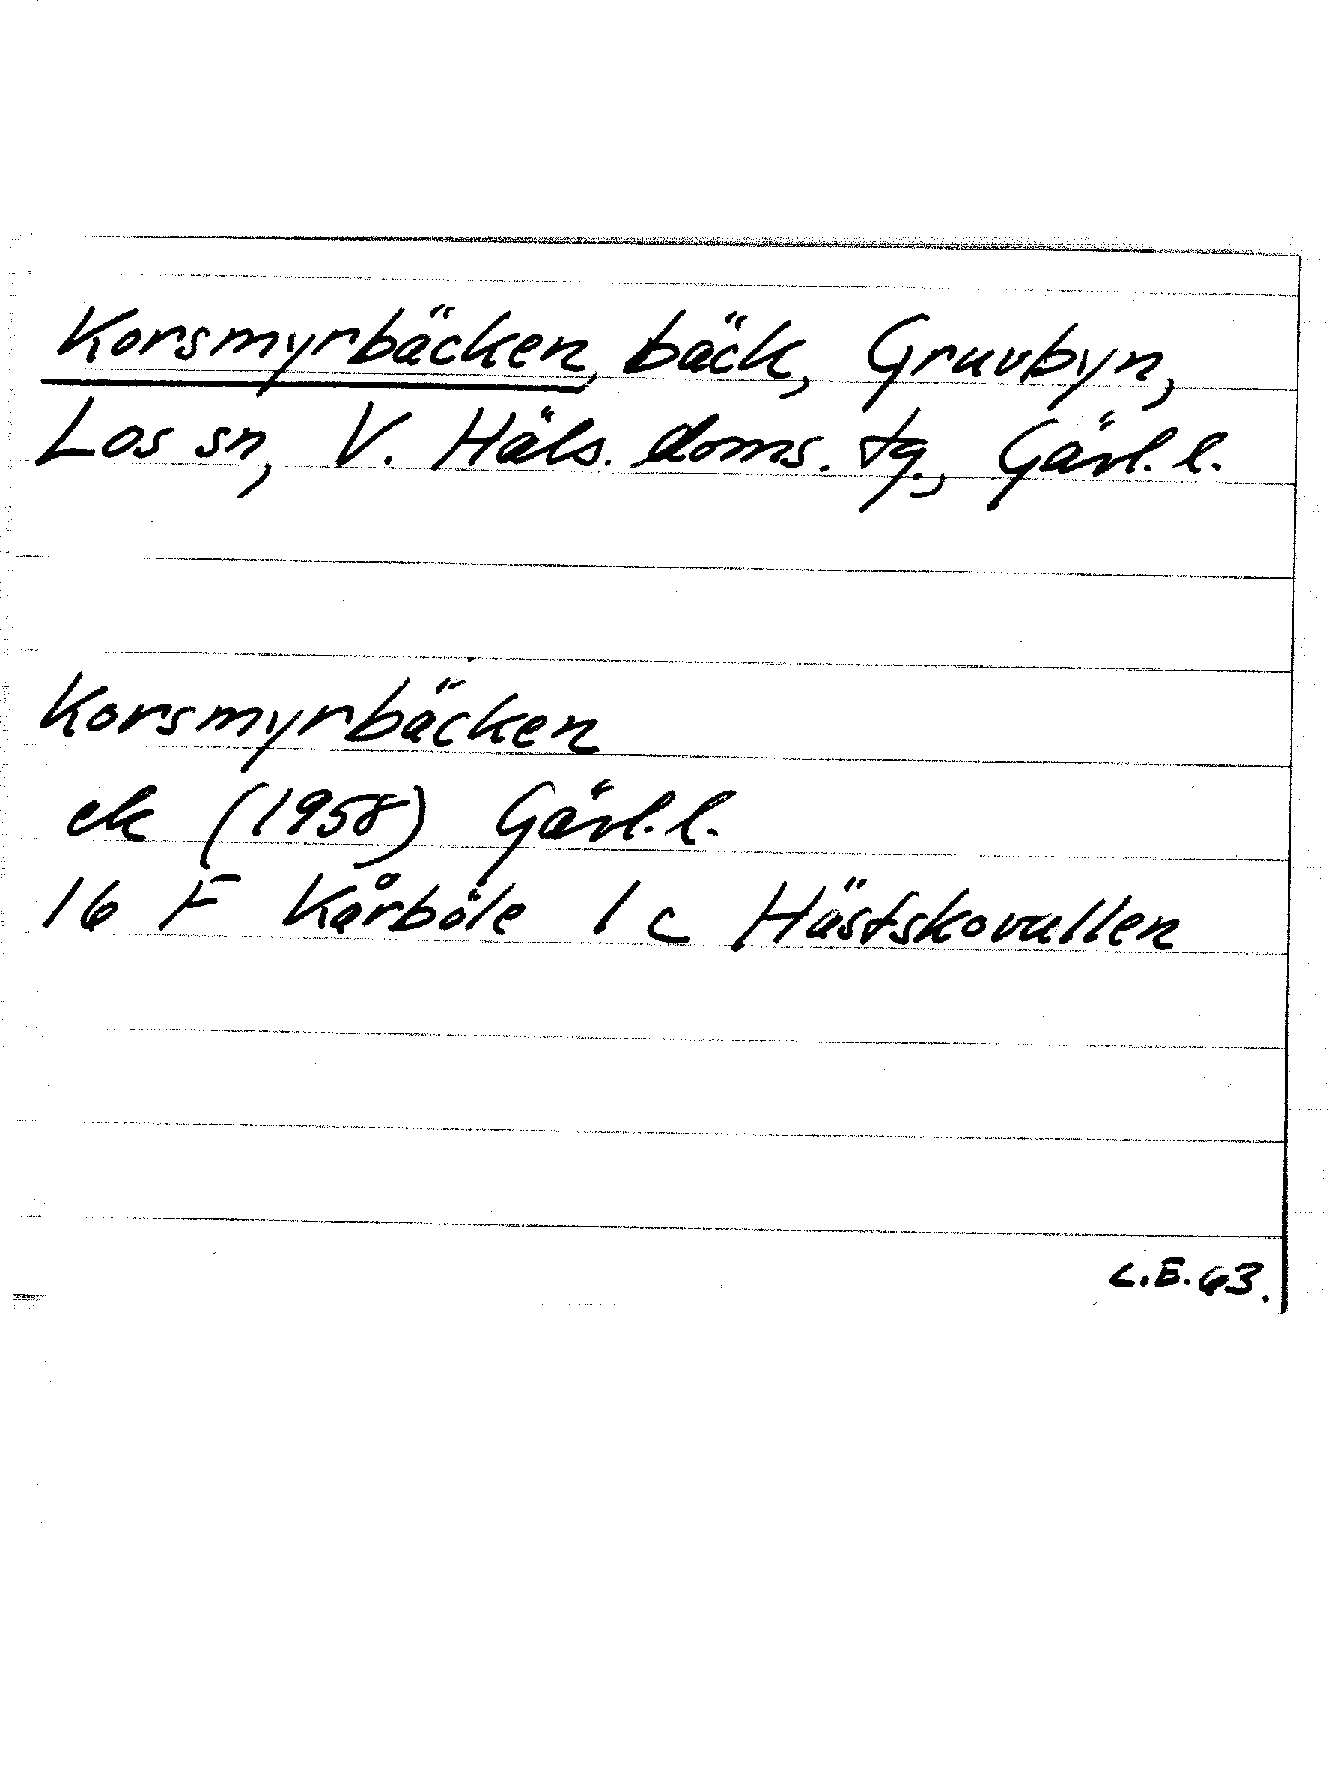 Korsmyrbäcken, bäck, Gruvbyn,
Los sn, V. Häls. doms. tg., Gävl. l.
Korsmyrbäcken
ek (1958) Gävl. l.
16 F Kårböle 1 c Hästskovallen
C.E. 63.